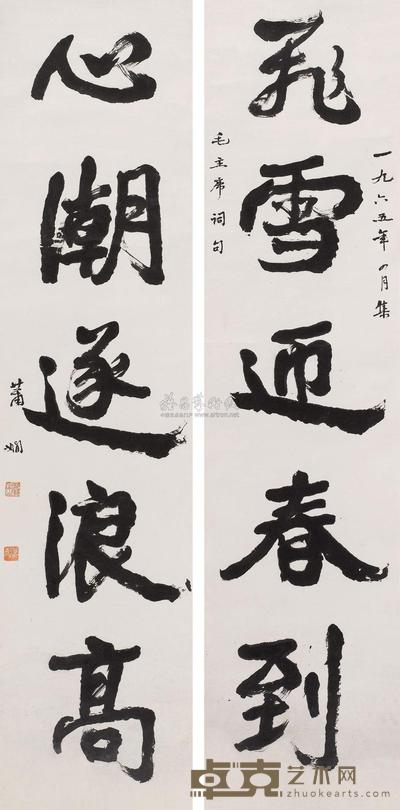 飛雪迎春到
一九六五年四月集
毛主席詞句
心潮逐浪高
蕭嫻
www.artron.net
卓克艺术网
zhuokearts.com